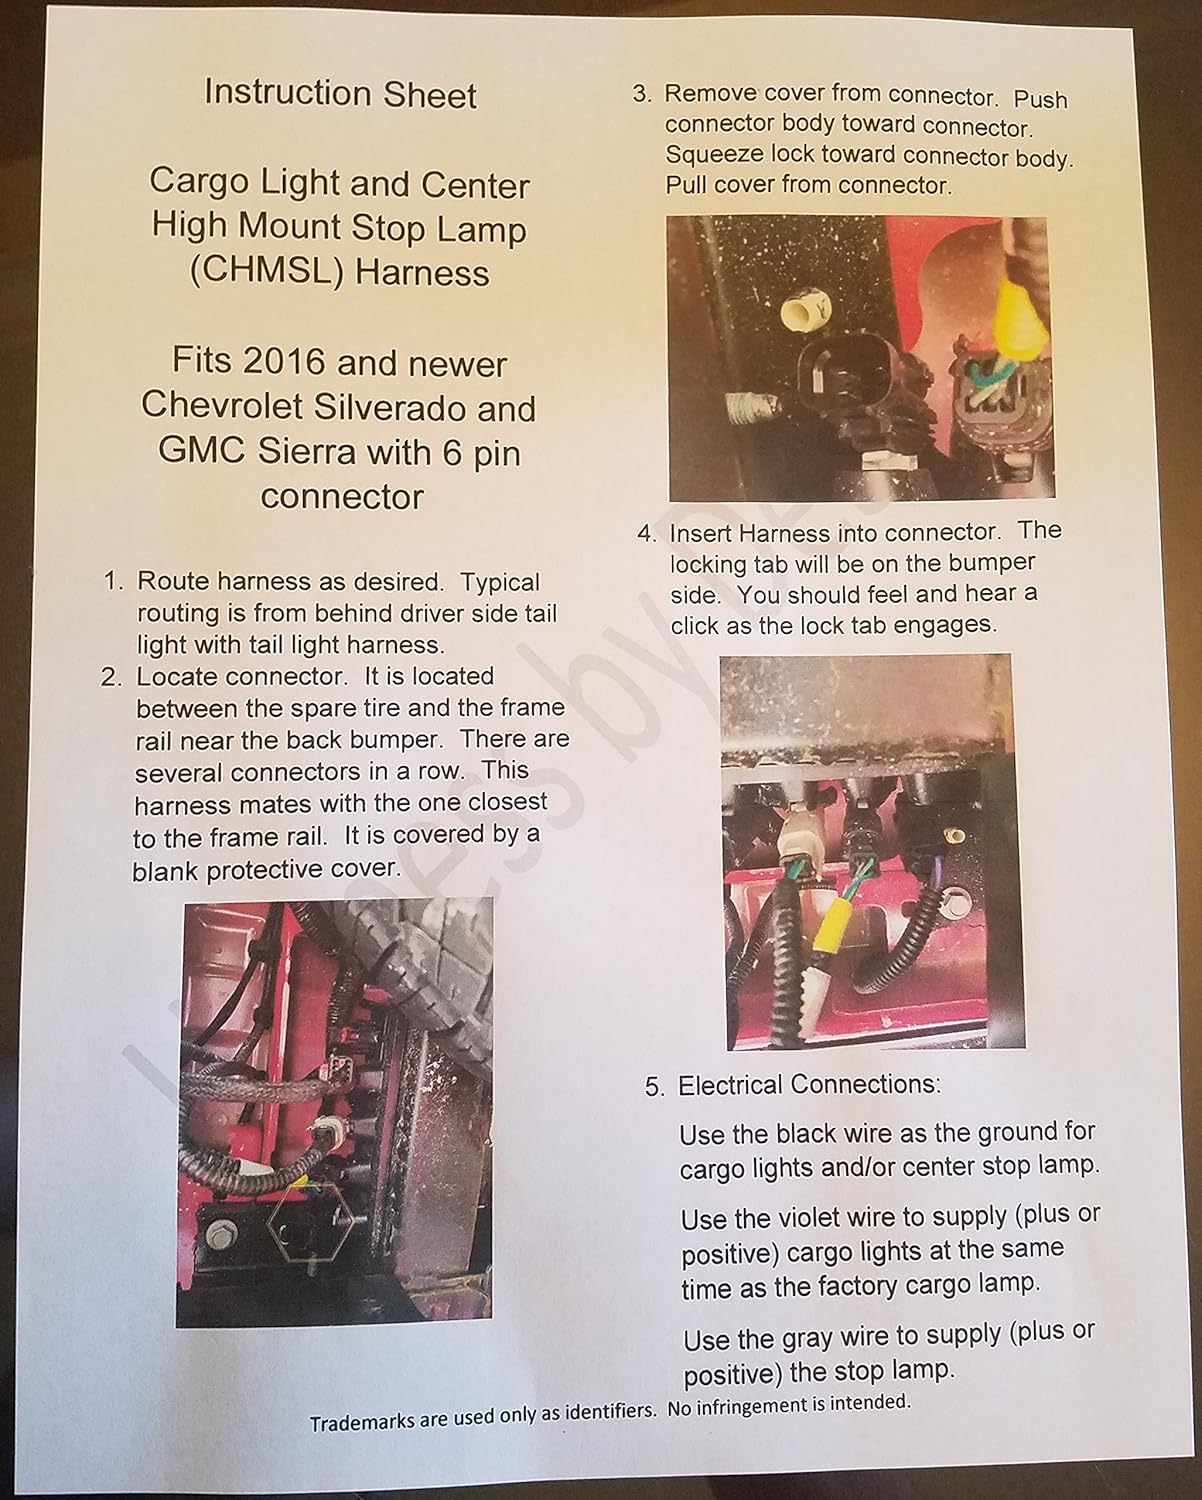 Instruction Sheet
Cargo Light and Center
High Mount Stop Lamp
(CHMSL) Harness
Fits 2016 and newer
Chevrolet Silverado and
GMC Sierra with 6 pin
connector
1. Route harness as desired. Typical
routing is from behind driver side tail
light with tail light harness.
2. Locate connector. It is located
between the spare tire and the frame
rail near the back bumper. There are
several connectors in a row. This
harness mates with the one closest
to the frame rail. It is covered by a
blank protective cover.
3. Remove cover from connector. Push
connector body toward connector.
Squeeze lock toward connector body.
Pull cover from connector.
4. Insert Harness into connector. The
locking tab will be on the bumper
side. You should feel and hear a
click as the lock tab engages.
5. Electrical Connections:
Use the black wire as the ground for
cargo lights and/or center stop lamp.
Use the violet wire to supply (plus or
positive) cargo lights at the same
time as the factory cargo lamp.
Use the gray wire to supply (plus or
positive) the stop lamp.
Trademarks are used only as identifiers. No infringement is intended.
by